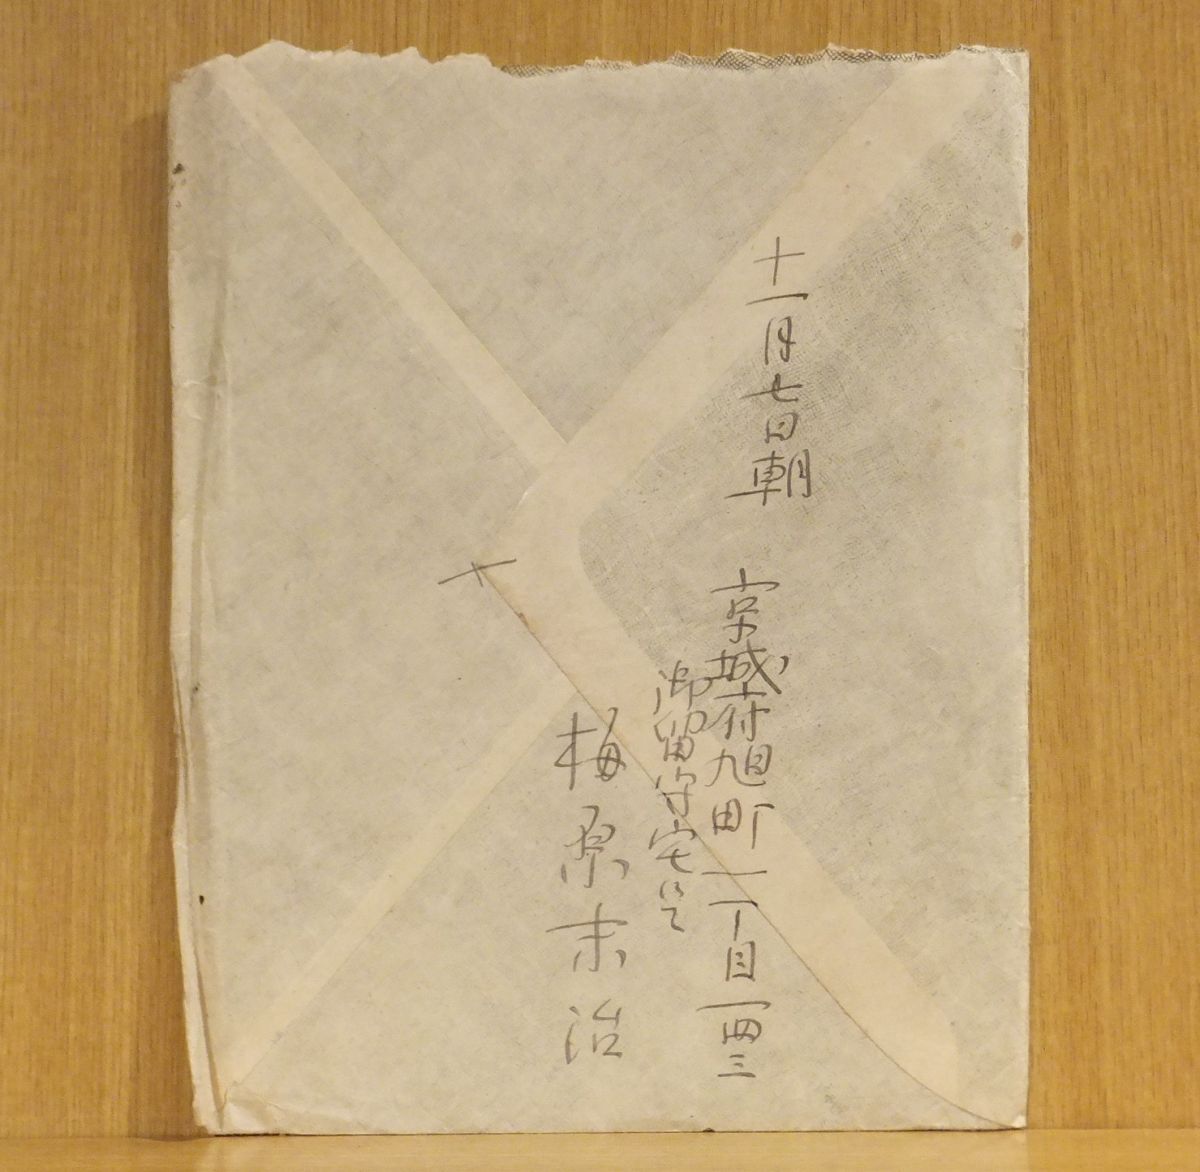 十一月七日朝 京城府旭町一丁目一四三
御留守宅
梅原末治
〆